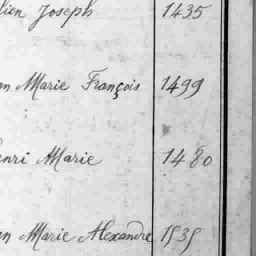 lien Joseph 1435
an Marie François 1499
enri Marie 1480
en Marie Alexandre 1535